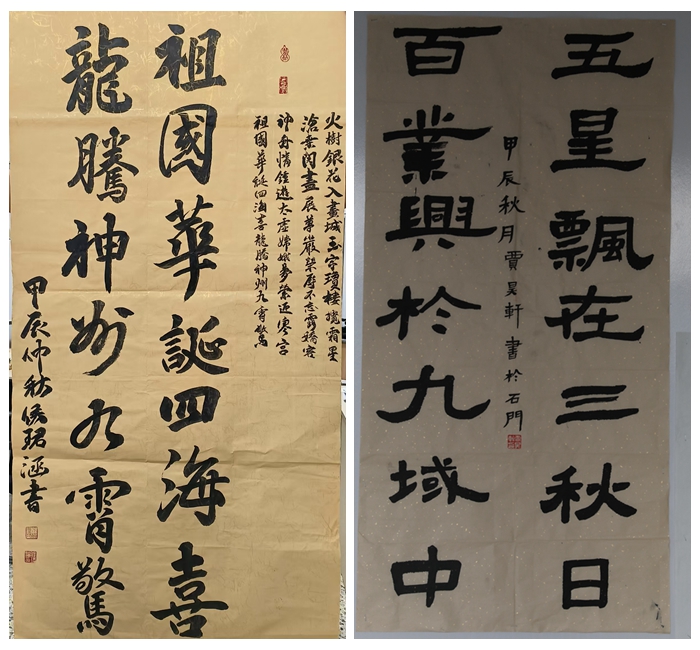 火樹銀花入畫城玉宇瓊樓攬霜星
滄桑閱盡辰華巖榮辱不忘露嬌容
神舟情鍾遊太虛嫦娥夢縈迎寒宮
祖國華誕四海喜龍騰神州九霄驚
祖國華誕四海喜
龍騰神州九霄驚
甲辰仲秋侯珺涵書
五星飄在三秋日
甲辰秋月賈昊軒書於石門
百業興於九域中